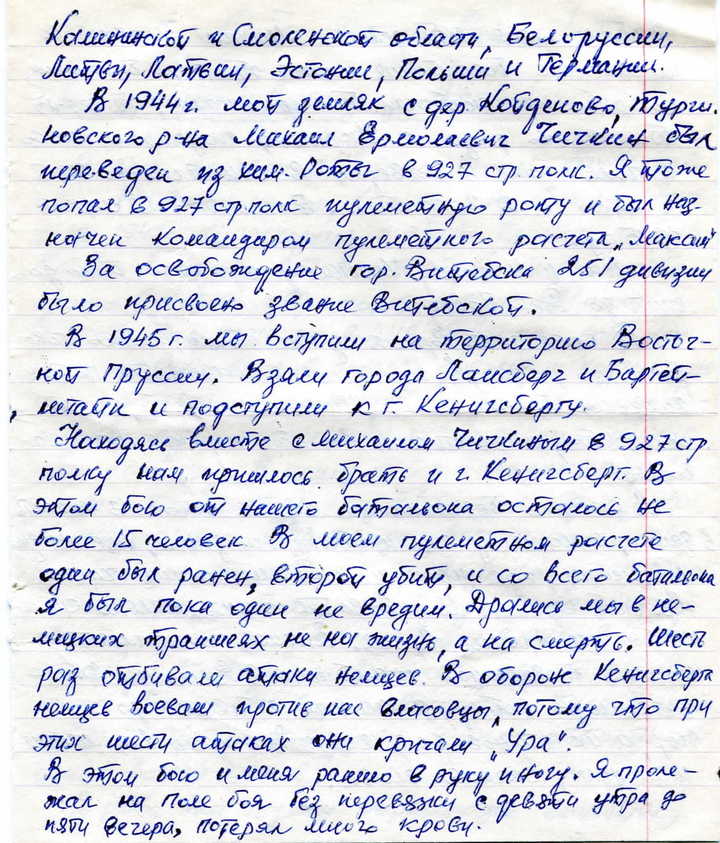 Калининской и Смоленской области, Белоруссии,
Литвы, Латвии, Эстонии, Польши и Германии.
В 1944 г. мой земляк с дер. Койденово, Турги-
новского р-на Михаил Ермолаевич Чичкин был
переведен из хим. роты в 927 стр. полк. Я тоже
попал в 927 стр полк пулеметную роту и был наз-
начен командиром пулеметного расчета „Максим"
За освобождение гор. Витебска 251 дивизии
было присвоено звание Витебской.
В 1945 г. мы вступили на территорию Восточ-
ной Пруссии. Взяли города Лансберг и Бартен-
штайн и подступили к г. Кенигсбергу.
Находясь вместе с Михаилом Чичкиным в 927 стр
полку нам пришлось брать и г. Кенигсберг. В
этом бою от нашего батальона осталось не
более 15 человек. В моем пулеметном расчете
один был ранен, второй убит, и со всего батальона
я был пока один не вредим. Дрались мы в не-
мицких траншеях не на жизнь, а на смерть. Шесть
раз отбивали атаки немцев. В обороне Кенигсберга
немцев воевали против нас власовцы, потому что при
этих шести атаках они кричали „Ура".
В этом бою и меня ранило в руку и ногу. Я проле-
жал на поле боя без перевязки с девяти утра до
пяти вечера, потерял много крови.